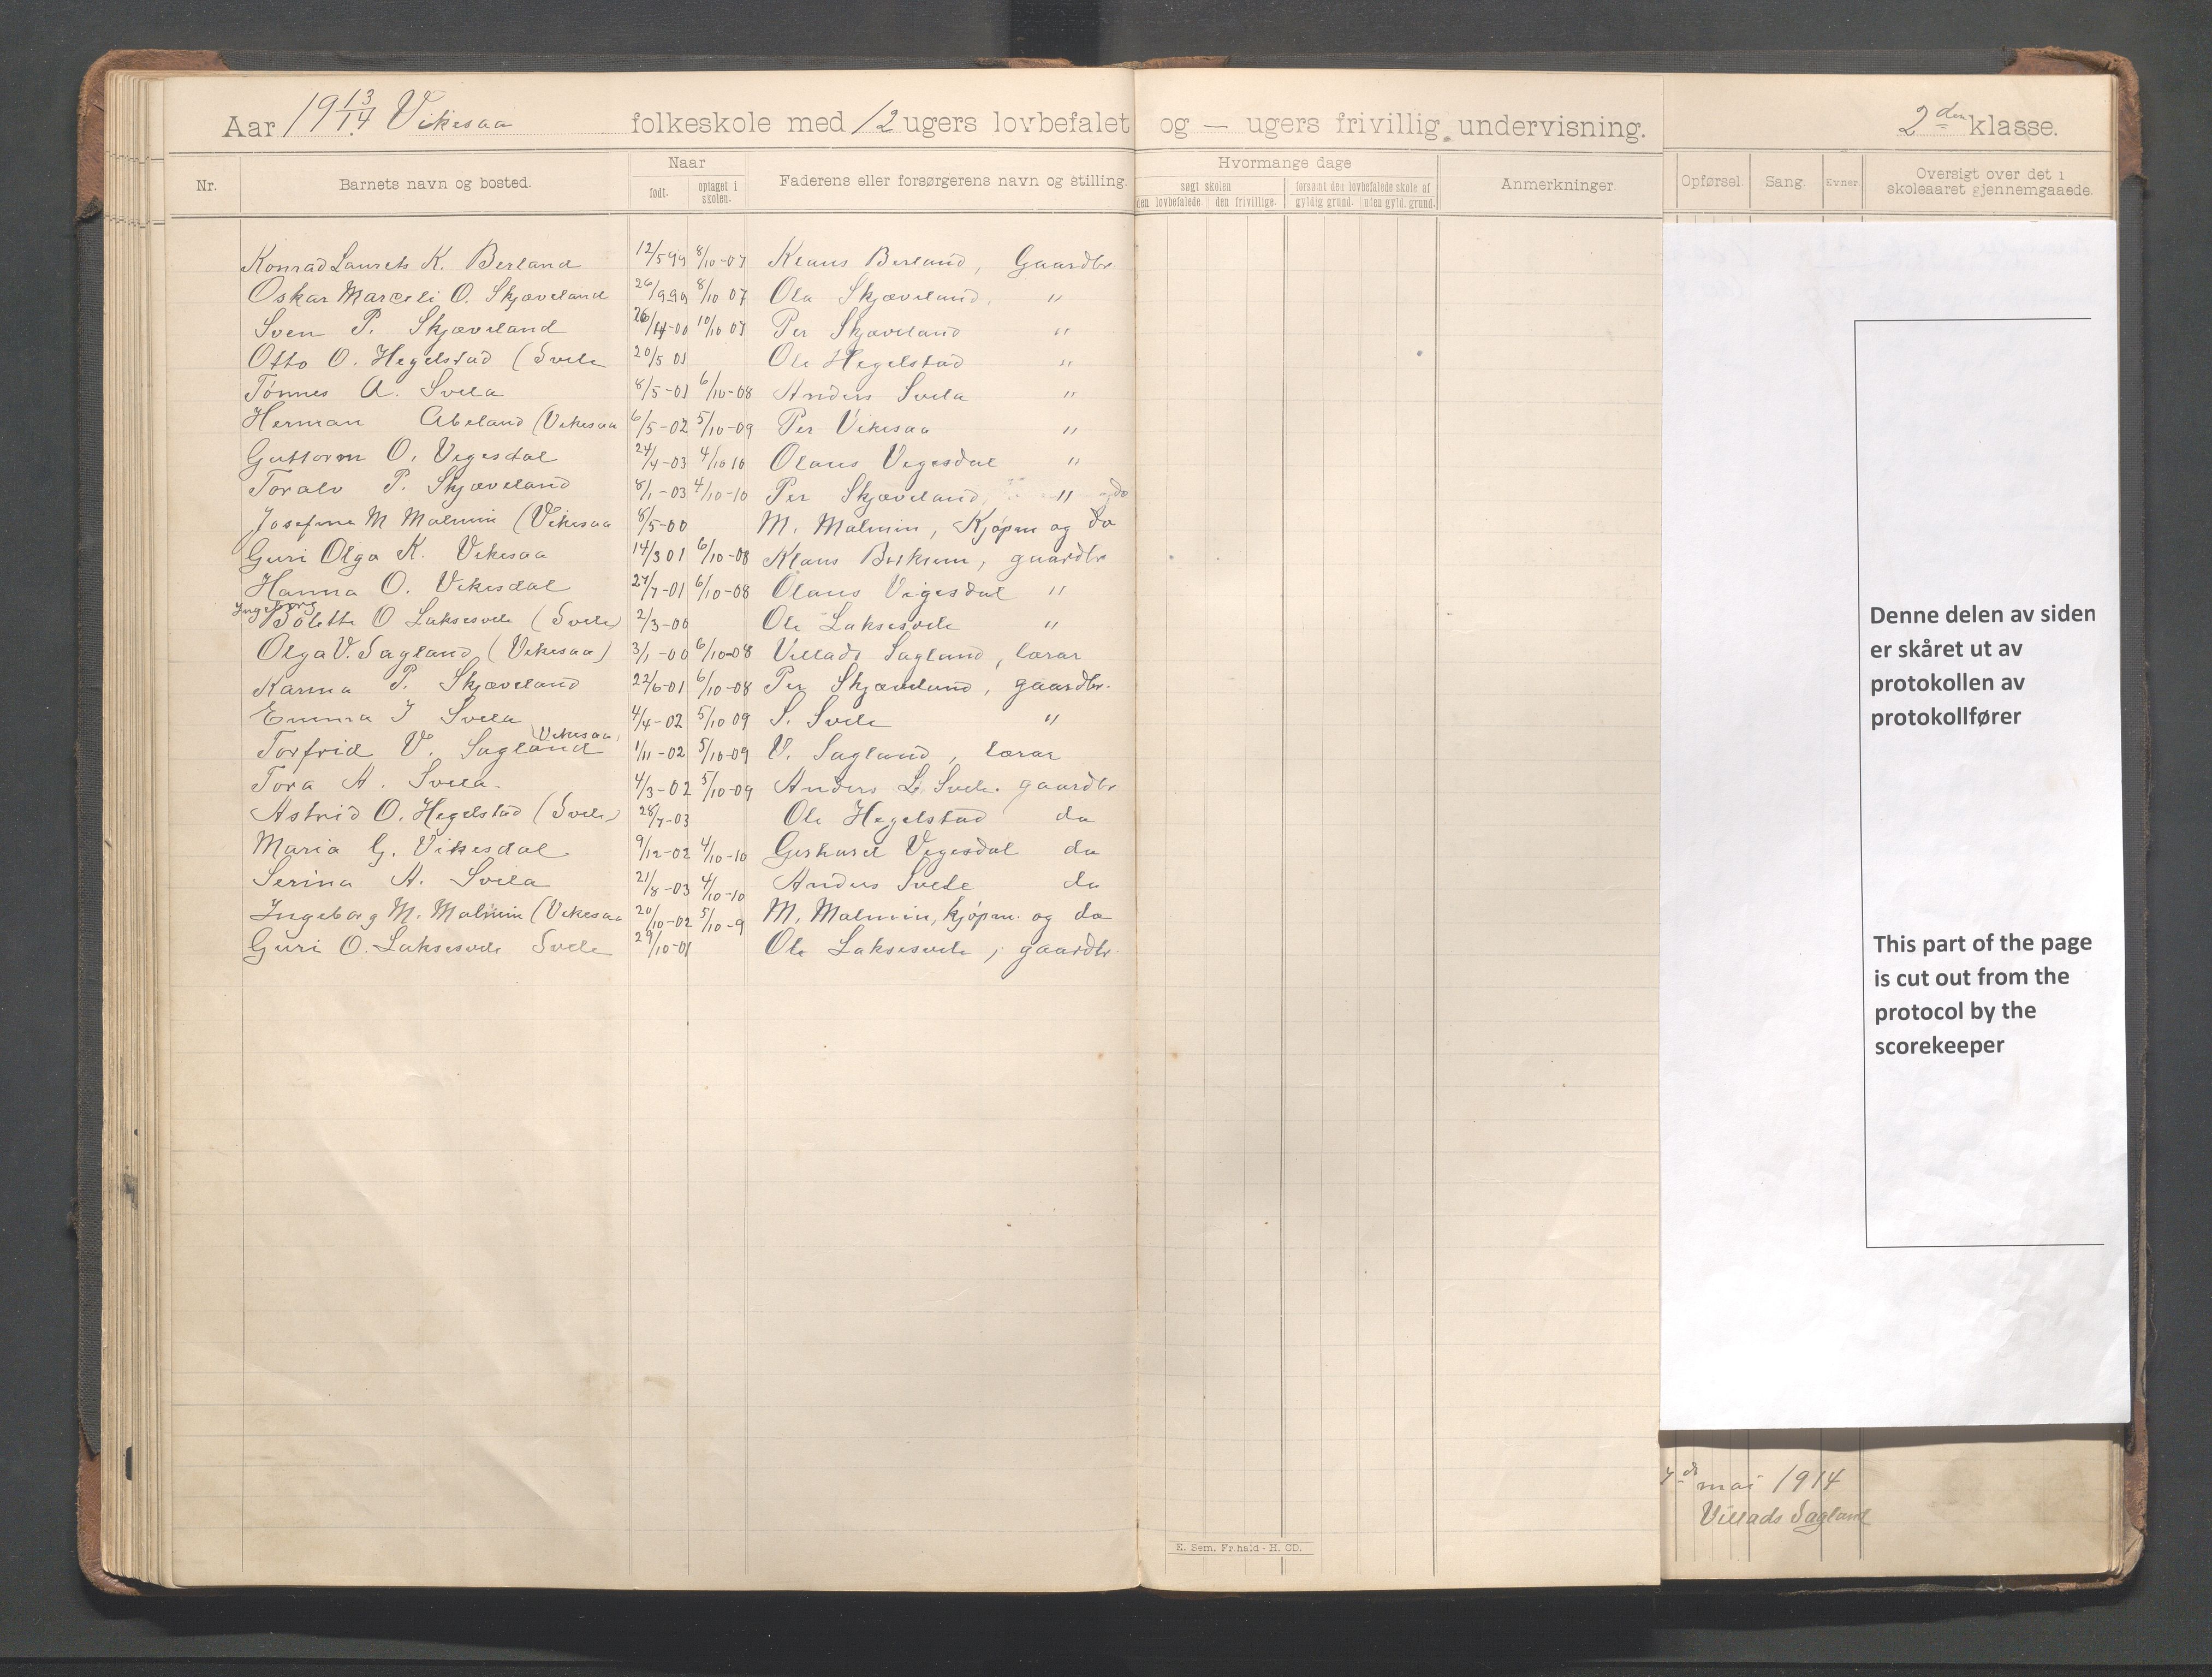 Aar 19 13/14 Vikesaa folkeskole med 12 ugers lovbefalet og — ugers frivillig undervisning. 2den klasse.
Nr. Barnets navn og bosted. Naar født. optaget i skolen. Faderens eller forsørgerens navn og stilling. Hvormange dage søgt skolen den lovbefalede. den frivillige. forsømt den lovbefalede skole af gyldig grund. uden gyld. grund. Anmerkninger. Opførsel. Sang. Evner. Oversigt over det i skoleaaret gjennemgaaede.
Konrad Laurets K. Berland 12/5 99 8/10-07 Klaus Berland, Gaardbr.
Oskar Marceli O. Skjæveland 26/9 99 8/10 07 Ola Skjæveland, "
Sven P. Skjæveland 26/4-00 10/10 07 Per Skjæveland "
Otto O. Hegelstad (Svele 20/5 01 Ole Hegelstad "
Tønnes A. Svela 8/5-01 6/10-08 Anders Svela "
Herman Abeland (Vikesaa 6/5-02 5/10-09 Per Vikesaa "
Guttorm O. Vegesdal 24/4-03 4/10 10 Olaus Vegesdal "
Toralv P. Skjæveland 8/1-03 4/10-10 Per Skjæveland, "
Josefine M Malmin (Vikesaa 8/5-00 M. Malmin, Kjøpm og do
Guri Olga K. Vikesaa 14/3 01 6/10-08 Klaus Berkem, gaardbr
Hanna O. Vikesdal 27/7-01 6/10-08 Olaus Vigesdal "
Ingeborg Bolette O Laksesvele (Svele) 2/3-00 Ole Laksesvele "
Olga V. Sagland (Vikesaa) 3/1-00 6/10-08 Villads Sagland, lærar
Karina P. Skjæveland 22/6-01 6/10-08 Per Skjæveland, gaardbr.
Emma I Svela 4/4-02 5/10 09 S. Svele "
Torfrid V. Sagland Vikesaa 1/11-02 5/10-09 V. Sagland, lærar
Tora A. Svela. 4/3-02 5/10-09 Anders L. Svele. gaardbr
Astrid O. Hegelstad (Svele) 28/7-03 Ole Hegelstad do
Maria G. Vikesdal 9/12-02 4/10-10 Gerhard Vegesdal do
Serina A. Svela 21/8-03 4/10-10 Anders Svele do
Ingeborg M. Malmin (Vikesaa 20/10-02 5/10-9 M. Malmin, kjøpm. og do
Guri O. Laksesvele Svele 29/10-01 Ole Laksesvele, gaardbr.
Denne delen av siden
er skåret ut av
protokollen av
protokollfører
This part of the page
is cut out from the
protocol by the
scorekeeper
7de mai 1914
Villads Sagland
E. Sem, Fr.hald - H. CD.